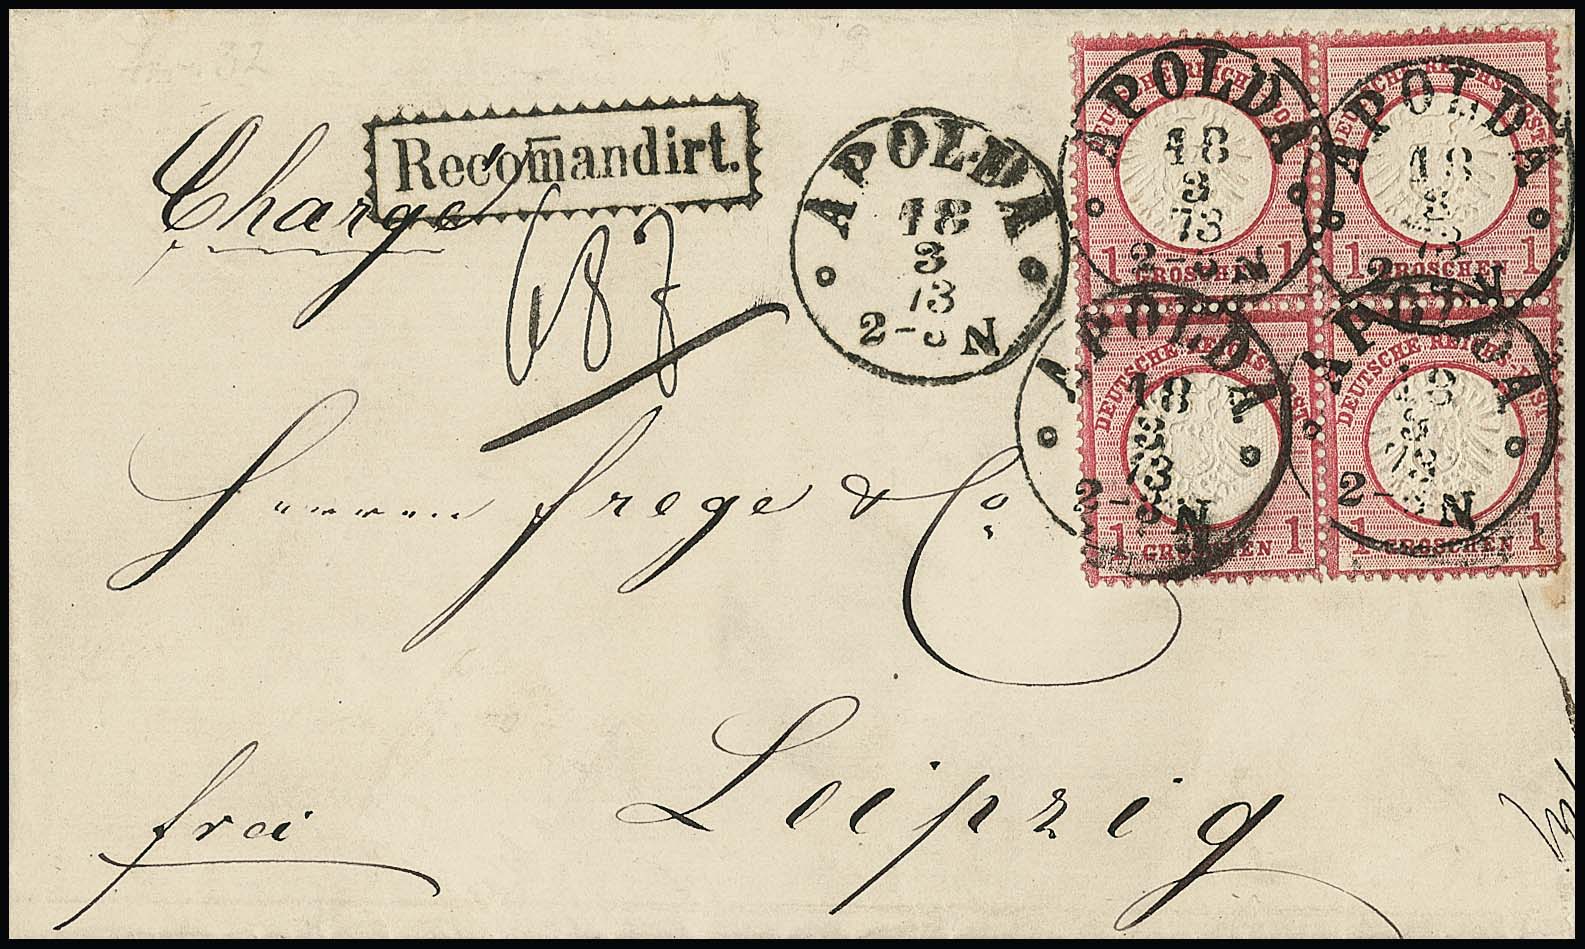 Recom̅andirt.
Charge
687
APOLDA
18
3
73
2-3 N
Herren Frege & Co.
Leipzig
frei
APOLDA
18
3
73
2-3 N
APOLDA
18
3
73
2 N
APOLDA
18
3
73
2-3 N
APOLDA
18
2- N
DEUTSCHE REICHS-POST
1 GROSCHEN 1
DEUTSCHE REICHS-POST
1 GROSCHEN 1
DEUTSCHE REICHS-POST
1 GROSCHEN 1
DEUTSCHE REICHS-POST
1 GROSCHEN 1